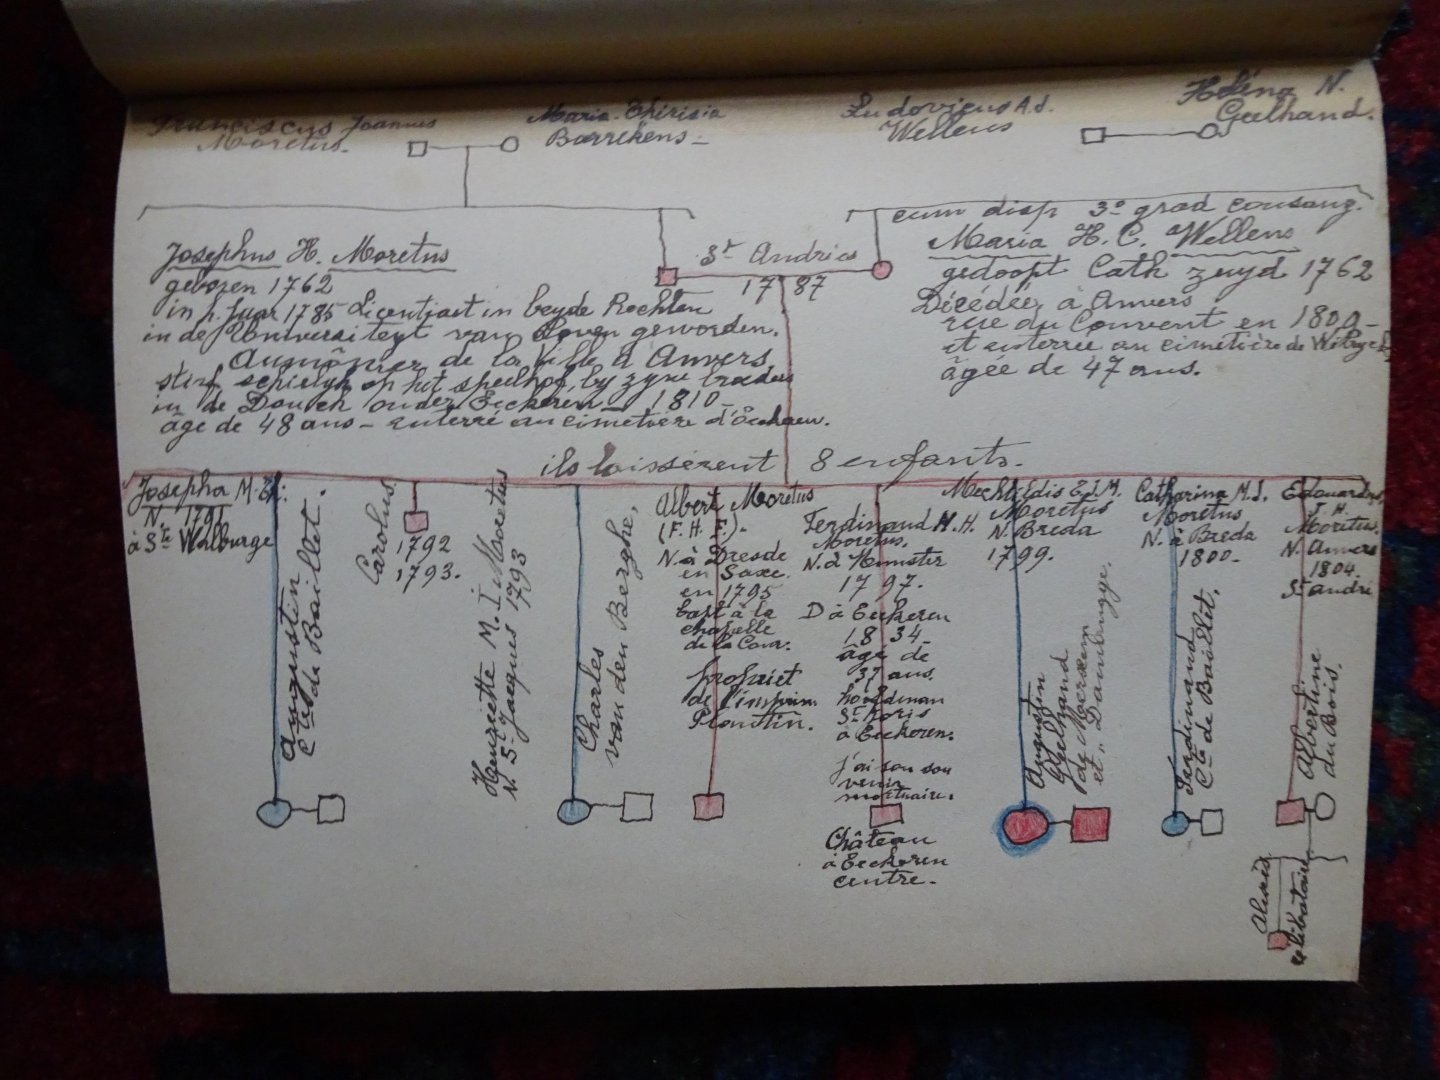 Franciscus Joannes
Moretus.
Maria Thiresia
Borrekens -
Ludovicus Ad.
Wellens
Héléna N.
Geelhand.
Josephus H. Moretus
geboren 1762
in h. Jaar 1785 Licentiaat in beyde Rechten
in de Universiteyt van Loven geworden.
Aumônier de la Ville d'Anvers
stirf op het speelhof, by zyne
in de Donck onder Eeckeren - 1810 -
âge de 48 ans - enterré au cimetière d'Eeckeren.
St Andries
1787
cum disp 3º grad consang.
Maria H. C. Wellens
gedoopt Cath zuyd 1762
Décédée à Anvers
rue du Couvent en 1800 -
et enterrée au cimetière de
âgée de 47 ans.
ils laissèrent 8 enfants.
Josepha M.
N. 1791
à Ste Walburge
Augustin
Cte de Baillet.
Carolus
1792
1793.
Henriette M. I. Moretus
N. St Jacques 1793
Charles
van den Berghe,
Albert Moretus
(F. H. F.).
N. à Dresde
en Saxe.
en 1795
bapt à la
chapelle
de la Cour.
propriet
de l'imprim
Plantin.
Ferdinand H. H.
Moretus.
N. à Munster
1797.
D à Eeckeren
1834
âgé de
37 ans.
hoofdman
St Joris
à Eeckeren.
j'ai son sou
venir
mortuaire.
Château
à Eeckeren
centre.
Mechtildis E. J. M.
Moretus
N. Breda
1799.
Augustin
Geelhand
de Merxem
et
Catharina M. J.
Moretus
N. à Breda
1800 -
Ferdinand
Cte de Baillet,
Edouardus
J. H.
Moretus.
N. Anvers
1804.
St andré
Albertine
du Bois.
Alexis
célibataire